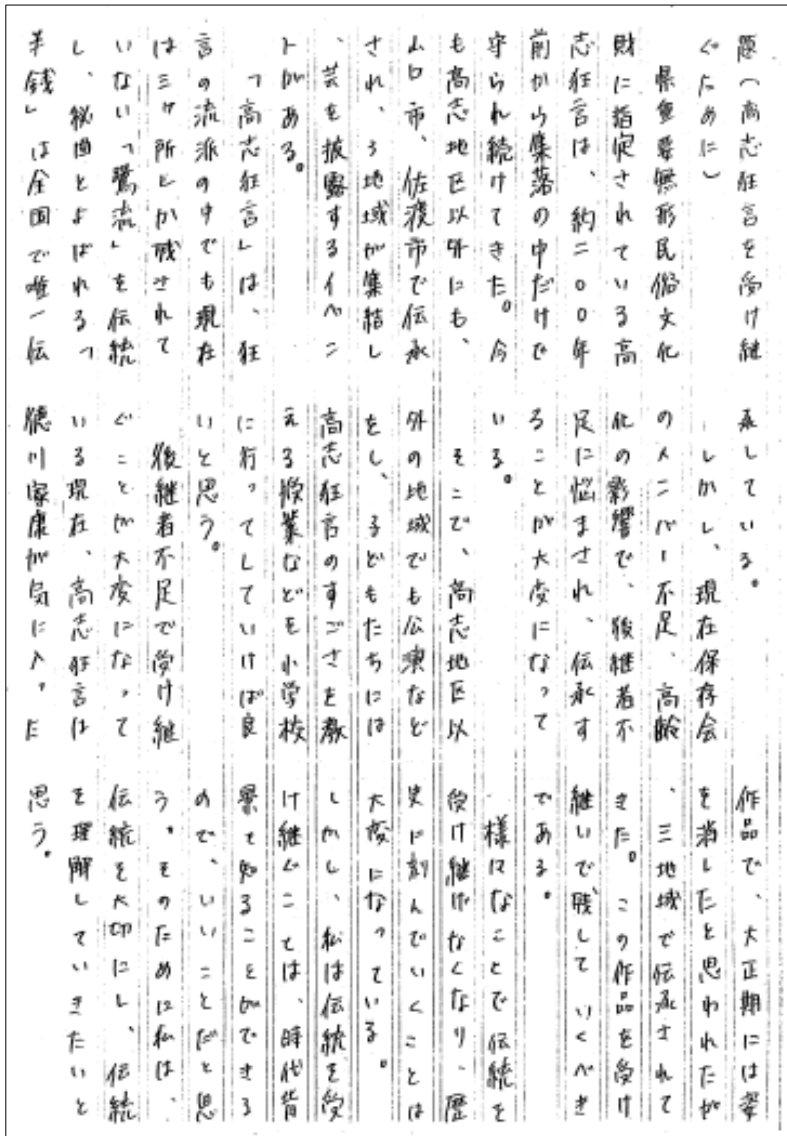 題(高志狂言を受け継
ぐために)
県重要無形民俗文化
財に指定されている高
志狂言は、約二〇〇年
前から集落の中だけで
守られ続けてきた。今
も高志地区以外にも、
山口市、佐渡市で伝承
され、3地域が集結し
、芸を披露するイベン
トがある。
「高志狂言」は、狂
言の流派の中でも現在
は三ヶ所しか残されて
いない「鷺流」を伝統
し、秘曲とよばれる「
半銭」は全国で唯一伝
承している。
しかし、現在保存会
のメンバー不足、高齢
化の影響で、後継者不
足に悩まされ、伝承す
ることが大変になって
いる。
そこで、高志地区以
外の地域でも公演など
をし、子どもたちには
高志狂言のすごさを教
える授業などを小学校
に行ってしていけば良
いと思う。
後継者不足で受け継
ぐことが大変になって
いる現在、高志狂言は
徳川家康が気に入った
作品で、大正期には姿
を消したと思われたが
、三地域で伝承されて
きた。この作品を受け
継いで残していくべき
である。
様々なことで伝統を
受け継げなくなり、歴
史に刻んでいくことは
大変になっている。
しかし、私は伝統を受
け継ぐことは、時代背
景を知ることができる
ので、いいことだと思
う。そのために私は、
伝統を大切にし、伝統
を理解していきたいと
思う。